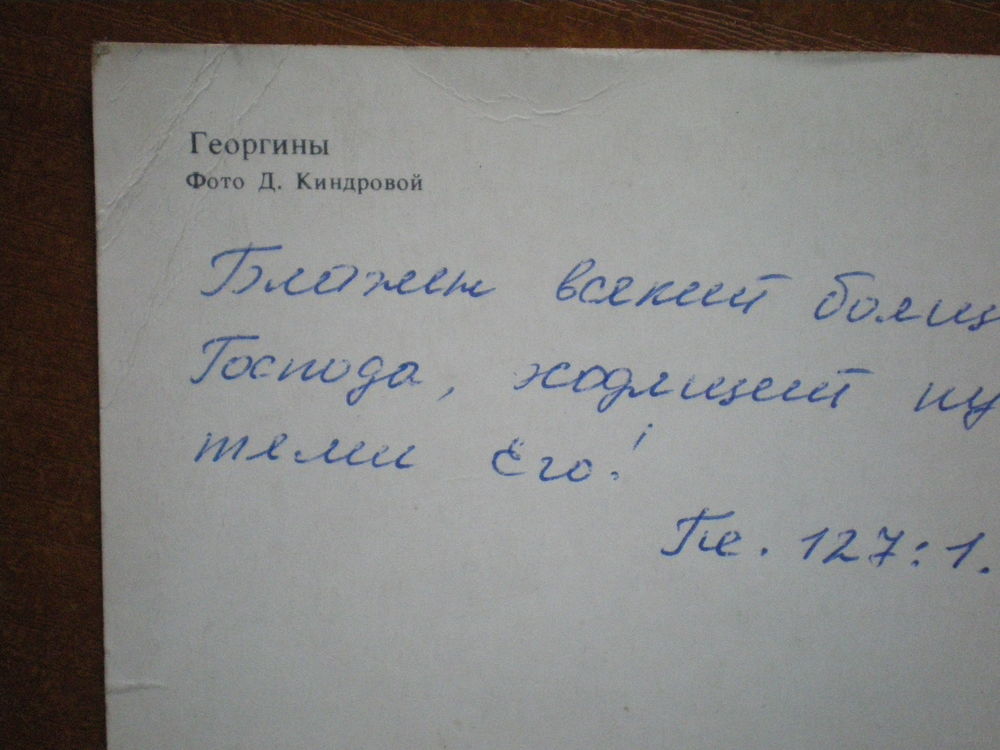 Георгины
Фото Д. Киндровой
Блажен всякий боящ
Господа, ходящий пу
тями Его!
Пс. 127:1.